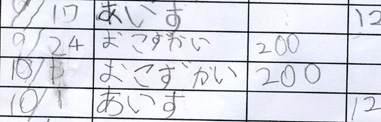 9/17 あいす 12
9/24 おこずかい 200
10/1 おこずかい 200
10/1 あいす 12